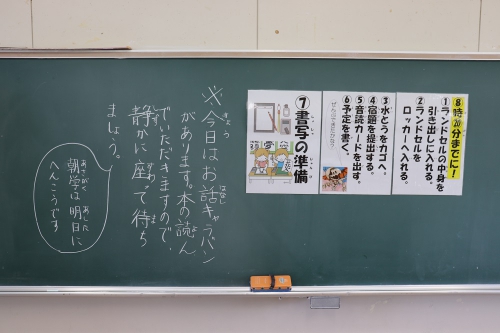 8時20分までに!
①ランドセルの中身を
引き出しに入れる。
②ランドセルを
ロッカーへ入れる。
③水とうをカゴへ。
④宿題を提出する。
⑤音読カードを出す。
⑥予定を書く。
⑦書写の準備
※今日はお話キャラバン
があります。本の読ん
でいただきますので、
静かに座って待ち
ましょう。
朝学は明日に
へんこうです